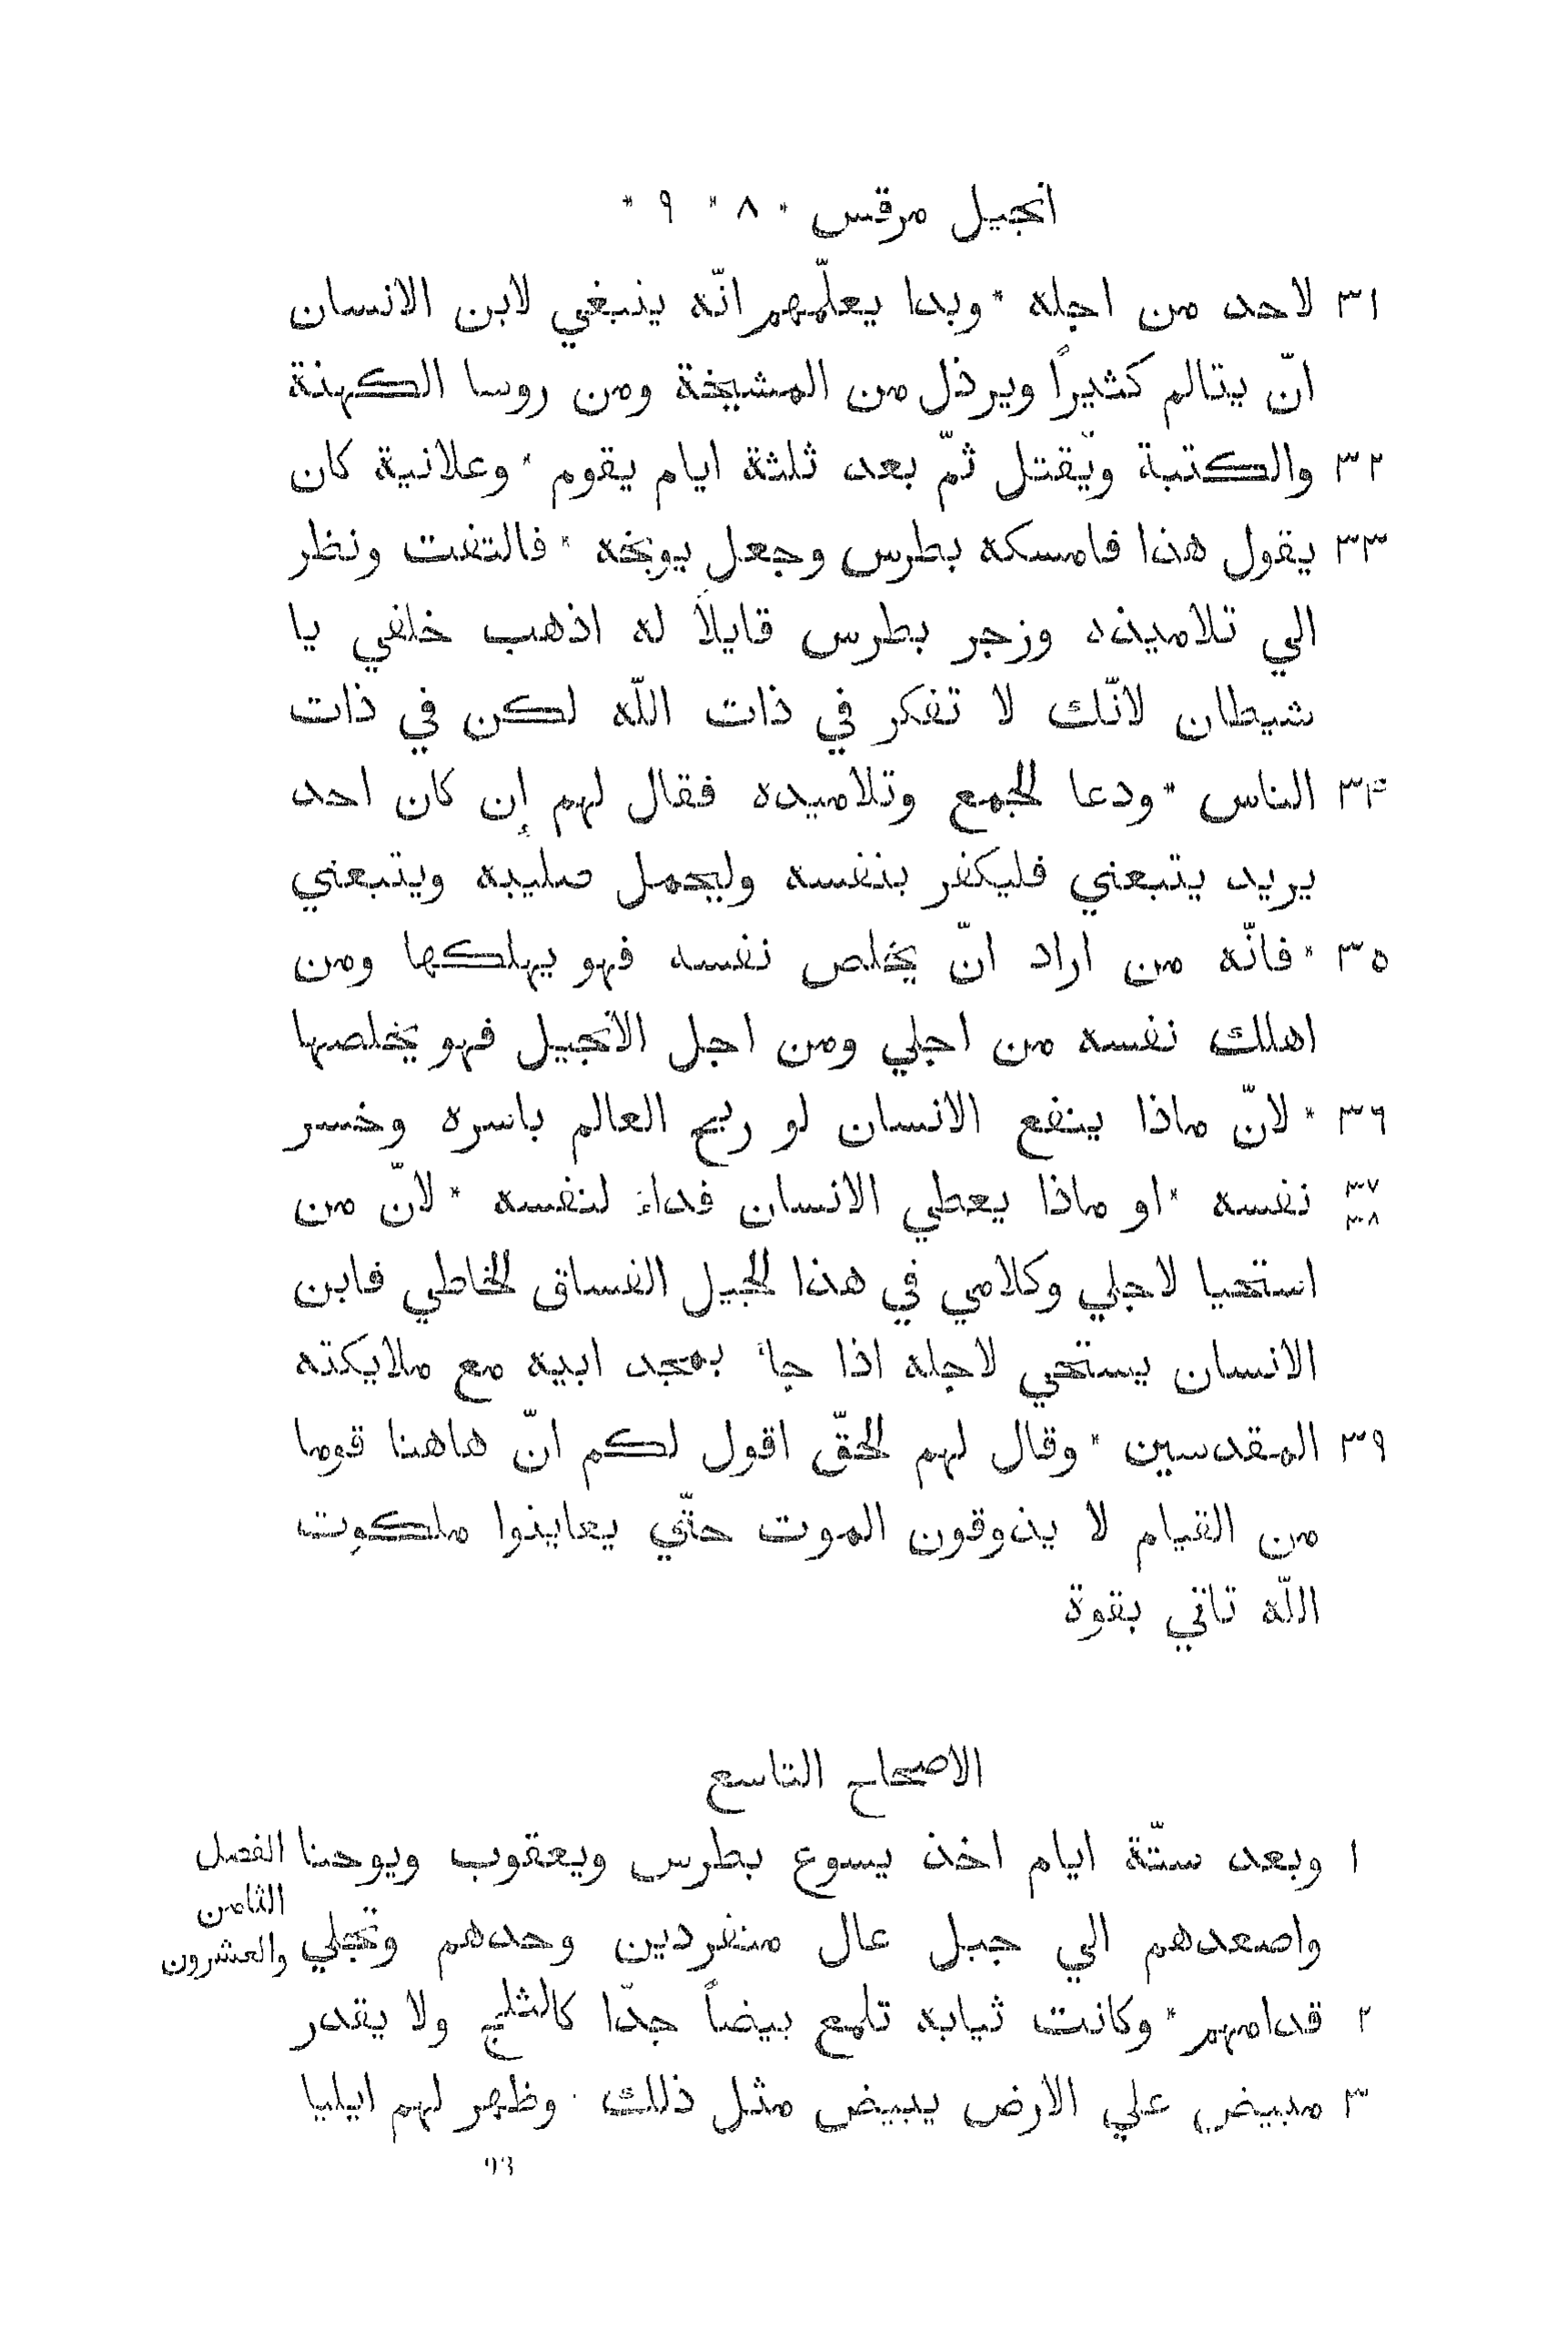 انجيل مرقس * ٨ * ٩ *
٣١ لاحد من اجله * وبدا يعلّمهم انّه ينبغي لابن الانسان
انّ يتالم كثيراً ويرذل من المشيخة ومن روسا الكهنة
٣٢ والكتبة ويّقتل ثمّ بعد ثلثة ايام يقوم * وعلانية كان
٣٣ يقول هذا فامسكه بطرس وجعل يوبخه * فالتفت ونظر
الي تلاميذه وزجر بطرس قايلاً له اذهب خلفي يا
شيطان لانّك لا تفكر في ذات اللّه لكن في ذات
٣۴ الناس * ودعا الجمع وتلاميده فقال لهم إن كان احد
يريد يتبعني فليكفر بنفسه وليحمل صليبه ويتبعني
٣٥ * فانّه من اراد انّ يخلص نفسه فهو يهلكها ومن
اهلك نفسه من اجلي ومن اجل الانجيل فهو يخلصها
٣٦ * لانّ ماذا ينفع الانسان لو ربح العالم باسره وخسر
٣٧ ٣٨ نفسه * او ماذا يعطي الانسان فداء لنفسه * لانّ من
استحيا لاجلي وكلامي في هذا الجيل الفساق الخاطي فابن
الانسان يستحي لاجله اذا جاء بمجد ابيه مع ملايكته
٣٩ المقدسين * وقال لهم الحقّ اقول لكم انّ هاهنا قوما
من القيام لا يذوقون الموت حتّي يعاينوا ملكوت
اللّه تاتي بقوة
الاصحاح التاسع
١ وبعد ستّة ايام اخذ يسوع بطرس ويعقوب ويوحنا الفصل
الثامن
واصعدهم الي جبل عال منفردين وحدهم وتجلي والعشرون
٢ قدامهم * وكانت ثيابه تلمع بيضاً جدّا كالثلج ولا يقدر
٣ مبيض علي الارض يبيض مثل ذلك * وظهر لهم ايليا
93